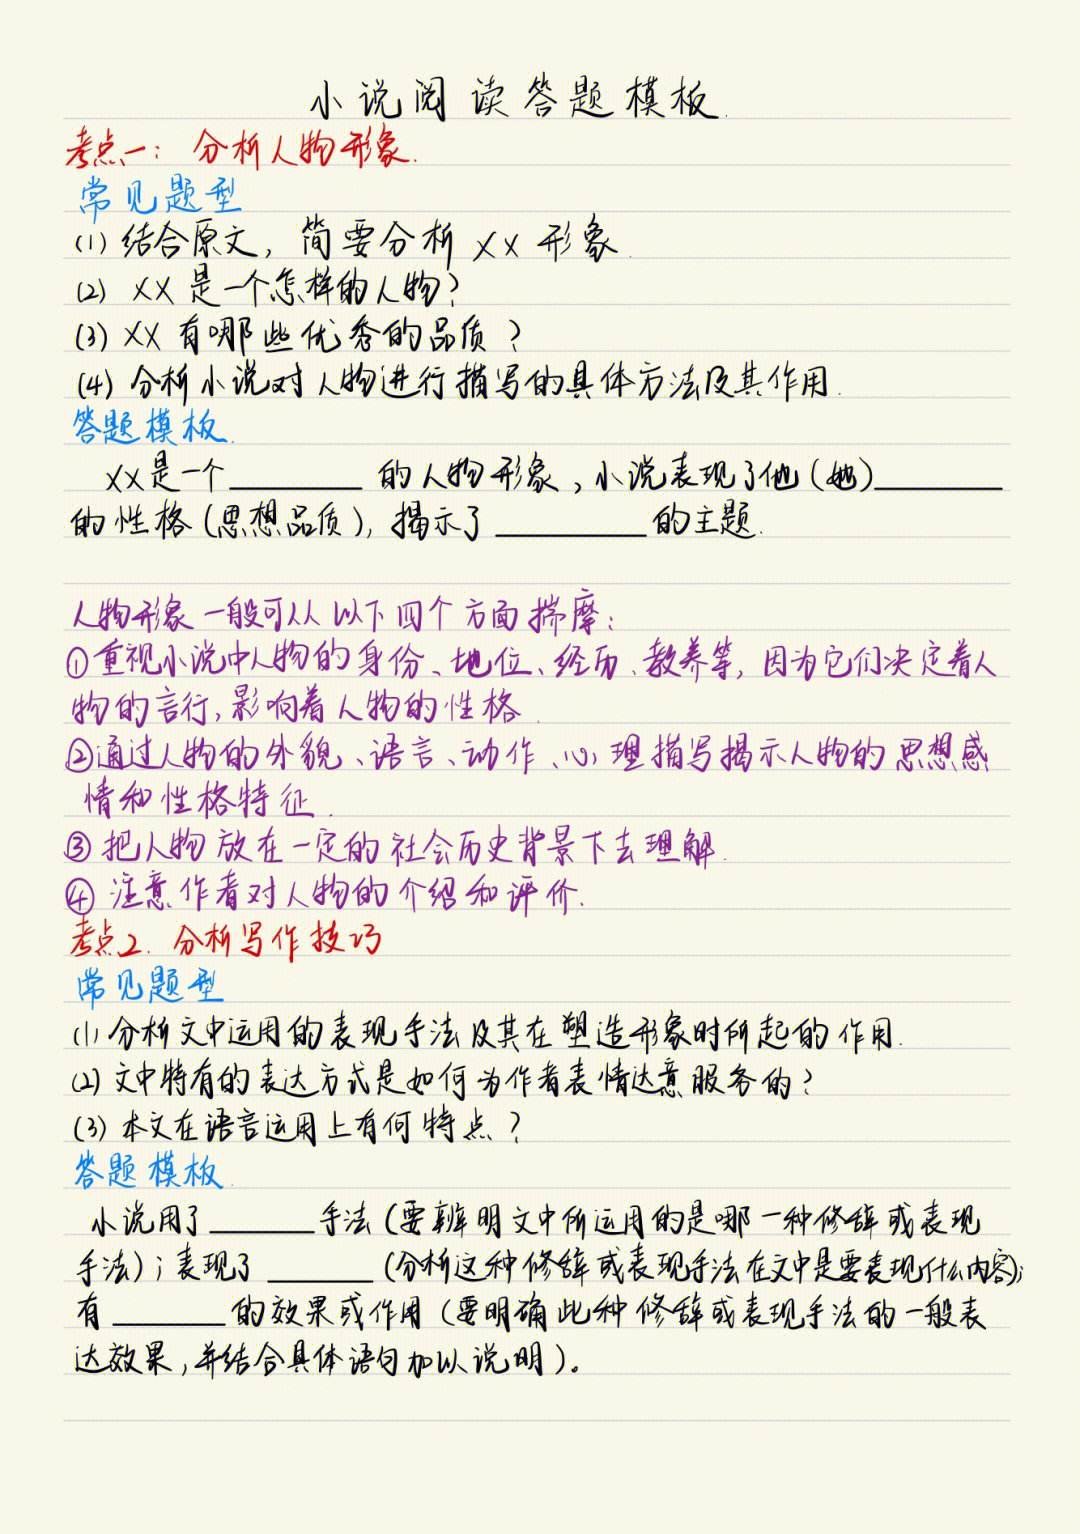 小说阅读答题模板.
考点一：分析人物形象.
常见题型
(1) 结合原文，简要分析XX形象.
(2) XX是一个怎样的人物?
(3) XX有哪些优秀的品质?
(4) 分析小说对人物进行描写的具体方法及其作用.
答题模板.
XX是一个________的人物形象，小说表现了他(她)________
的性格(思想品质)，揭示了________的主题.
人物形象一般可从以下四个方面揣摩：
①重视小说中人物的身份、地位、经历、教养等，因为它们决定着人
物的言行，影响着人物的性格.
②通过人物的外貌、语言、动作、心理描写揭示人物的思想感
情和性格特征.
③把人物放在一定的社会历史背景下去理解.
④注意作者对人物的介绍和评价.
考点2. 分析写作技巧
常见题型
(1) 分析文中运用的表现手法及其在塑造形象时所起的作用.
(2) 文中特有的表达方式是如何为作者表情达意服务的?
(3) 本文在语言运用上有何特点?
答题模板.
小说用了________手法(要辨明文中所运用的是哪一种修辞或表现
手法)；表现了________(分析这种修辞或表现手法在文中是要表现什么内容)；
有________的效果或作用(要明确此种修辞或表现手法的一般表
达效果，并结合具体语句加以说明)。